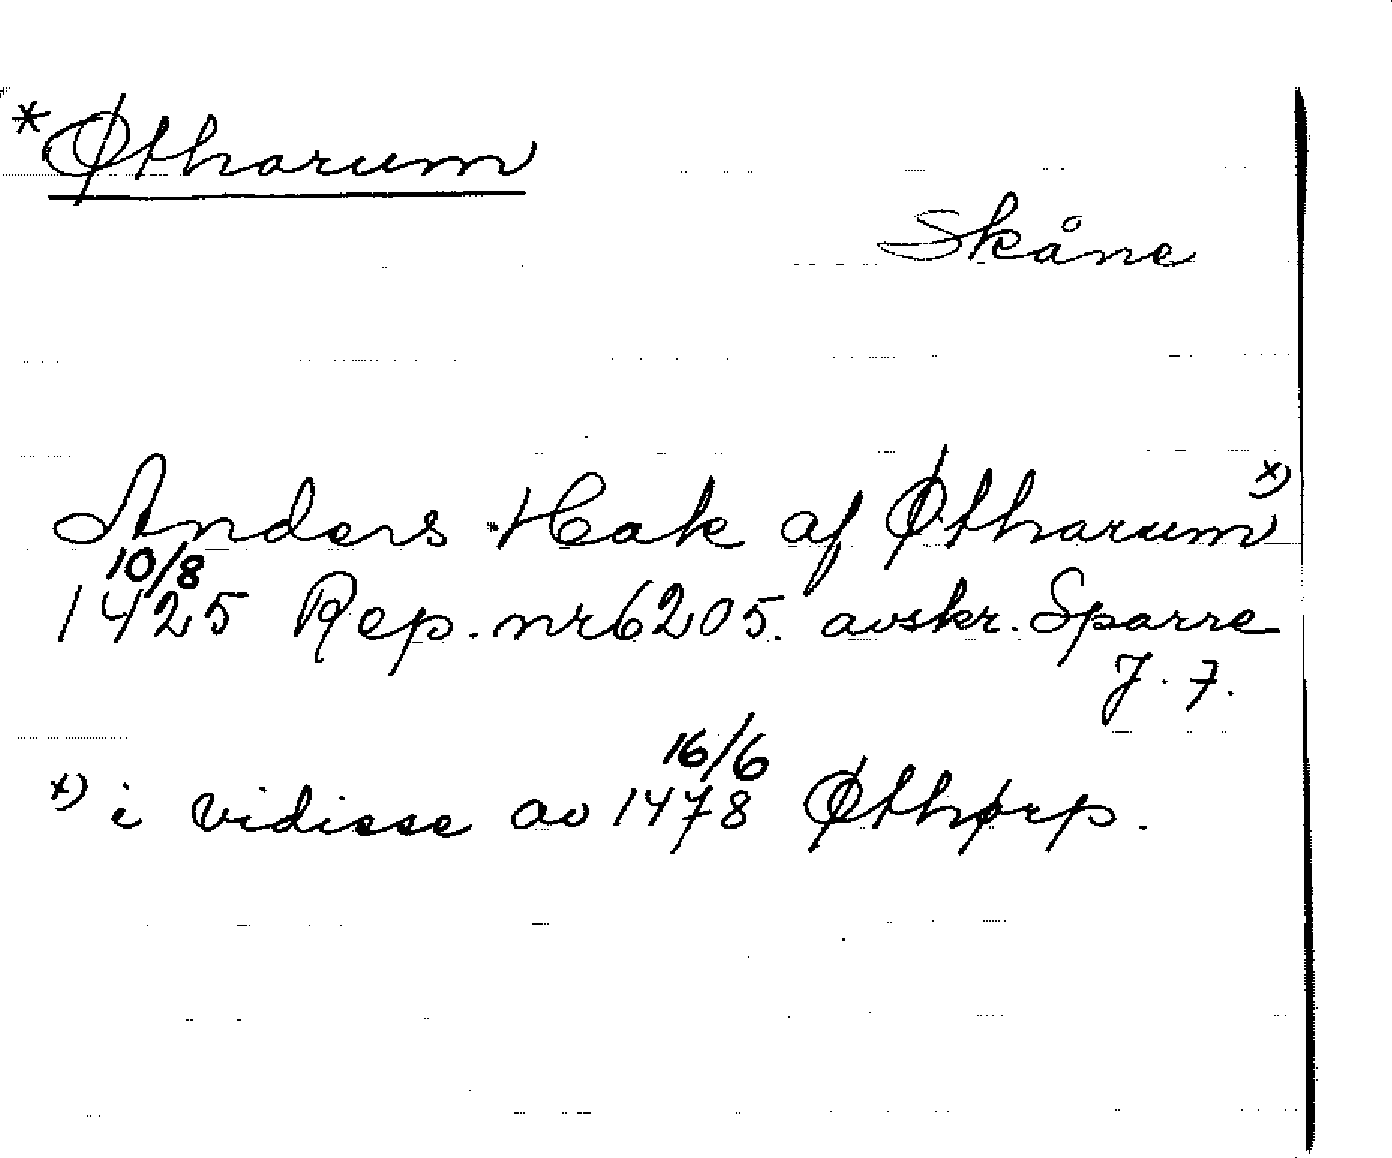 *Øtharum
Skåne
Anders Hak af Øtharum x)
10/8
1425 Rep. nr 6205. avskr. Sparre
J. 7.
x) i vidisse av 16/6 1478 Øthørp.